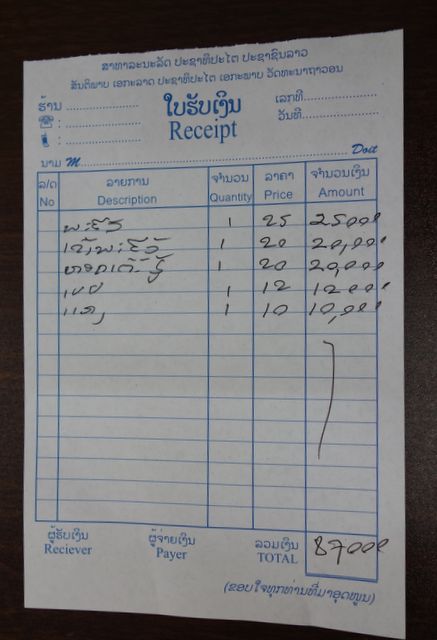 ສາທາລະນະລັດ ປະຊາທິປະໄຕ ປະຊາຊົນລາວ
ສັນຕິພາບ ເອກະລາດ ປະຊາທິປະໄຕ ເອກະພາບ ວັດທະນາຖາວອນ
ຮ້ານ ........................ ໃບຮັບເງິນ ເລກທີ........................
☎ : ........................ Receipt ວັນທີ........................
: ........................
ນາມ M........................ Doit
ລ/ດ ລາຍການ ຈຳນວນ ລາຄາ ຈຳນວນເງິນ
No Description Quantity Price Amount
1 25 25000
1 20 20,000
1 20 20,000
1 12 12000
1 10 10,000
ຜູ້ຮັບເງິນ ຜູ້ຈ່າຍເງິນ ລວມເງິນ 87000
Reciever Payer TOTAL
(ຂອບໃຈທຸກທ່ານທີ່ມາອຸດໜູນ)